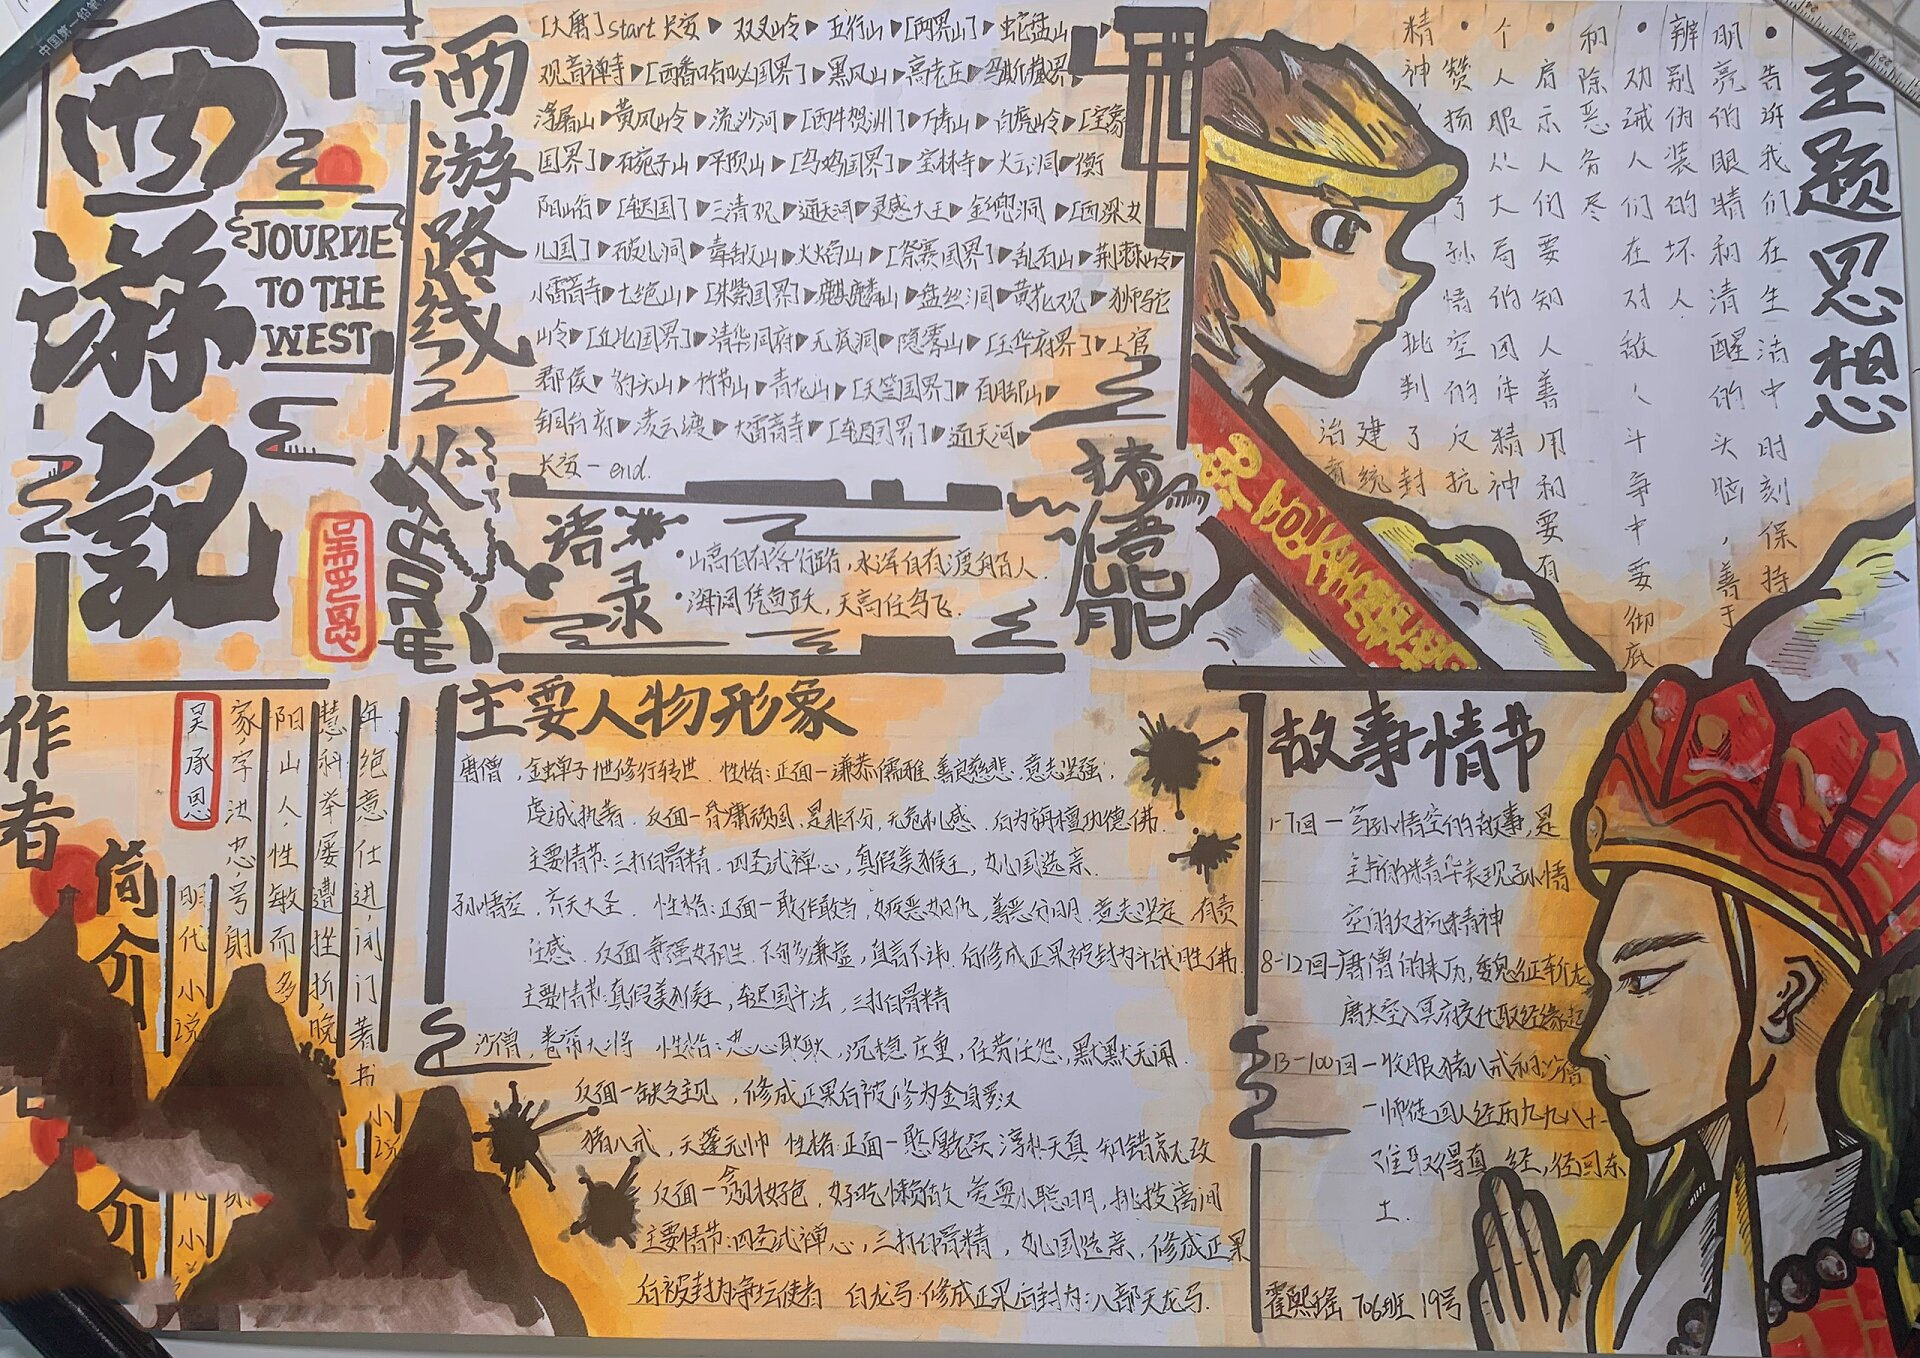 西游記
JOURNE
TO THE
WEST
西游路线
[大唐]start 长安▶双叉岭▶五行山▶[两界山]▶蛇盘山▶
观音禅寺▶[西番哈咇国界]▶黑风山▶高老庄▶乌斯藏界▶
浮屠山▶黄风岭▶流沙河▶[西牛贺洲]▶万寿山▶白虎岭▶[宝象
国界]▶碗子山▶平顶山▶[乌鸡国界]▶宝林寺▶火云洞▶衡
阳峪▶[车迟国]▶三清观▶通天河▶灵感大王▶金兜洞▶[西梁女
儿国]▶破儿洞▶毒敌山▶火焰山▶[祭赛国界]▶乱石山▶荆棘岭▶
小雷音寺▶七绝山▶[朱紫国界]▶麒麟山▶盘丝洞▶黄花观▶狮驼
岭▶[比丘国界]▶清华洞府▶无底洞▶隐雾山▶[玉华府界]▶上官
郡侯▶豹头山▶竹节山▶青龙山▶[天竺国界]▶百脚山▶
铜台府▶凌云渡▶大雷音寺▶[车迟国界]▶通天河▶
长安-end.
语录
•山高自有客行路,水深自有渡船人.
•海阔凭鱼跃,天高任鸟飞.
猪悟能
主题思想
•告诉我们在生活中时刻保持
明亮的眼睛和清醒的头脑,善于
辨别伪装的坏人
•劝诫人们在对敌人、斗争中要彻底
和除恶务尽
•启示人们要知人善用和要有
个人服从大局的团体精神
•赞扬了孙悟空的反抗
精神 批判了封建统治
作者简介
吴承恩
明代小说
家,字汝忠,号射
阳山人,性敏而多
慧,科举屡遭挫折,晚
年绝意仕进,闭门著书
小说
主要人物形象
唐僧,金蝉子十世修行转世 性格:正面—谦恭儒雅 善良慈悲 意志坚强,
虔诚执著. 反面—昏庸顽固,是非不分,无危机感. 后为旃檀功德佛.
主要情节:三打白骨精,四圣试禅心,真假美猴王,女儿国选亲.
孙悟空,齐天大圣. 性格:正面—敢作敢当,嫉恶如仇,善恶分明,意志坚定,有责
任感. 反面 争强好胜 不够多谦虚,直言不讳. 后修成正果被封为斗战胜佛.
主要情节:真假美猴王,车迟国斗法,三打白骨精
沙僧,卷帘大将 性格:忠心耿耿,沉稳庄重,任劳任怨,默默无闻.
反面—缺乏主见,修成正果后被修为金身罗汉
猪八戒,天蓬元帅 性格:正面—憨厚老实 淳朴天真 知错就改
反面—贪财好色,好吃懒做 爱耍小聪明,挑拨离间
主要情节:四圣试禅心,三打白骨精,女儿国选亲,修成正果
后被封为净坛使者 白龙马:修成正果后封为:八部天龙马.
故事情节
1-7回—写孙悟空的故事,是
全书的精华表现孙悟
空的反抗精神
8-12回-唐僧的来历,魏征斩龙
唐太宗入冥府交代取经缘起
13-100回—收服猪八戒和沙僧
—师徒四人经历九九八十一
难取得真经,径回东
土.
霍熙瑶 706班 19号